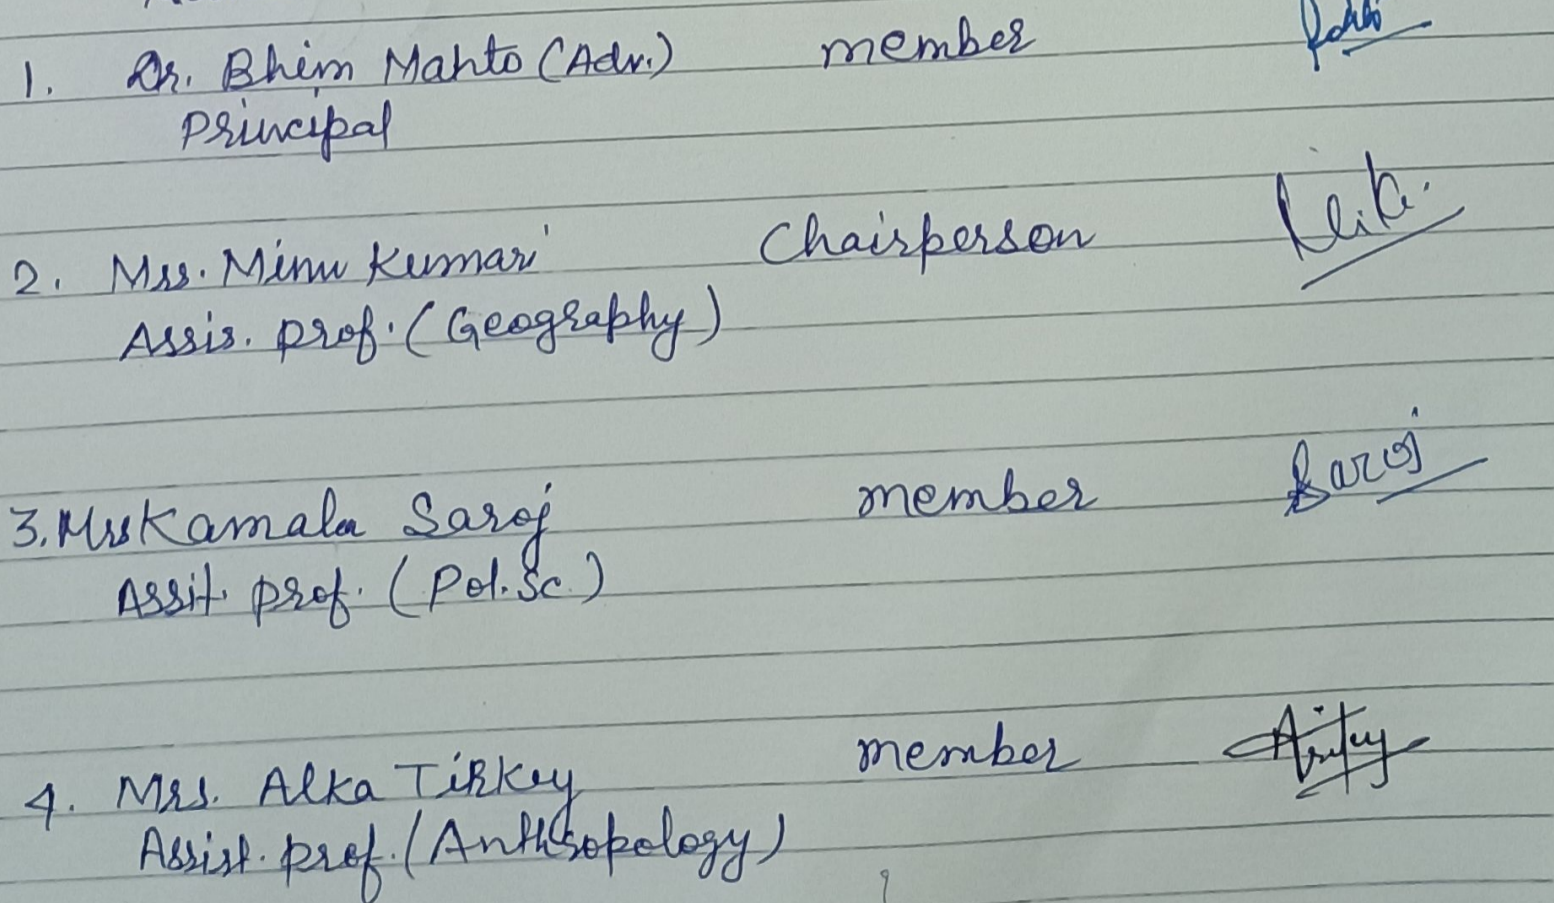 1. Dr. Bhim Mahto (Adv.) member
Principal
2. Mrs. Minu Kumari Chairperson
Assis. prof. (Geography)
3. Mrs Kamala Saroj member Saroj
Assit. prof. (Pol. Sc.)
4. Mrs. Alka Tirkey member
Assist. prof. (Anthropology)